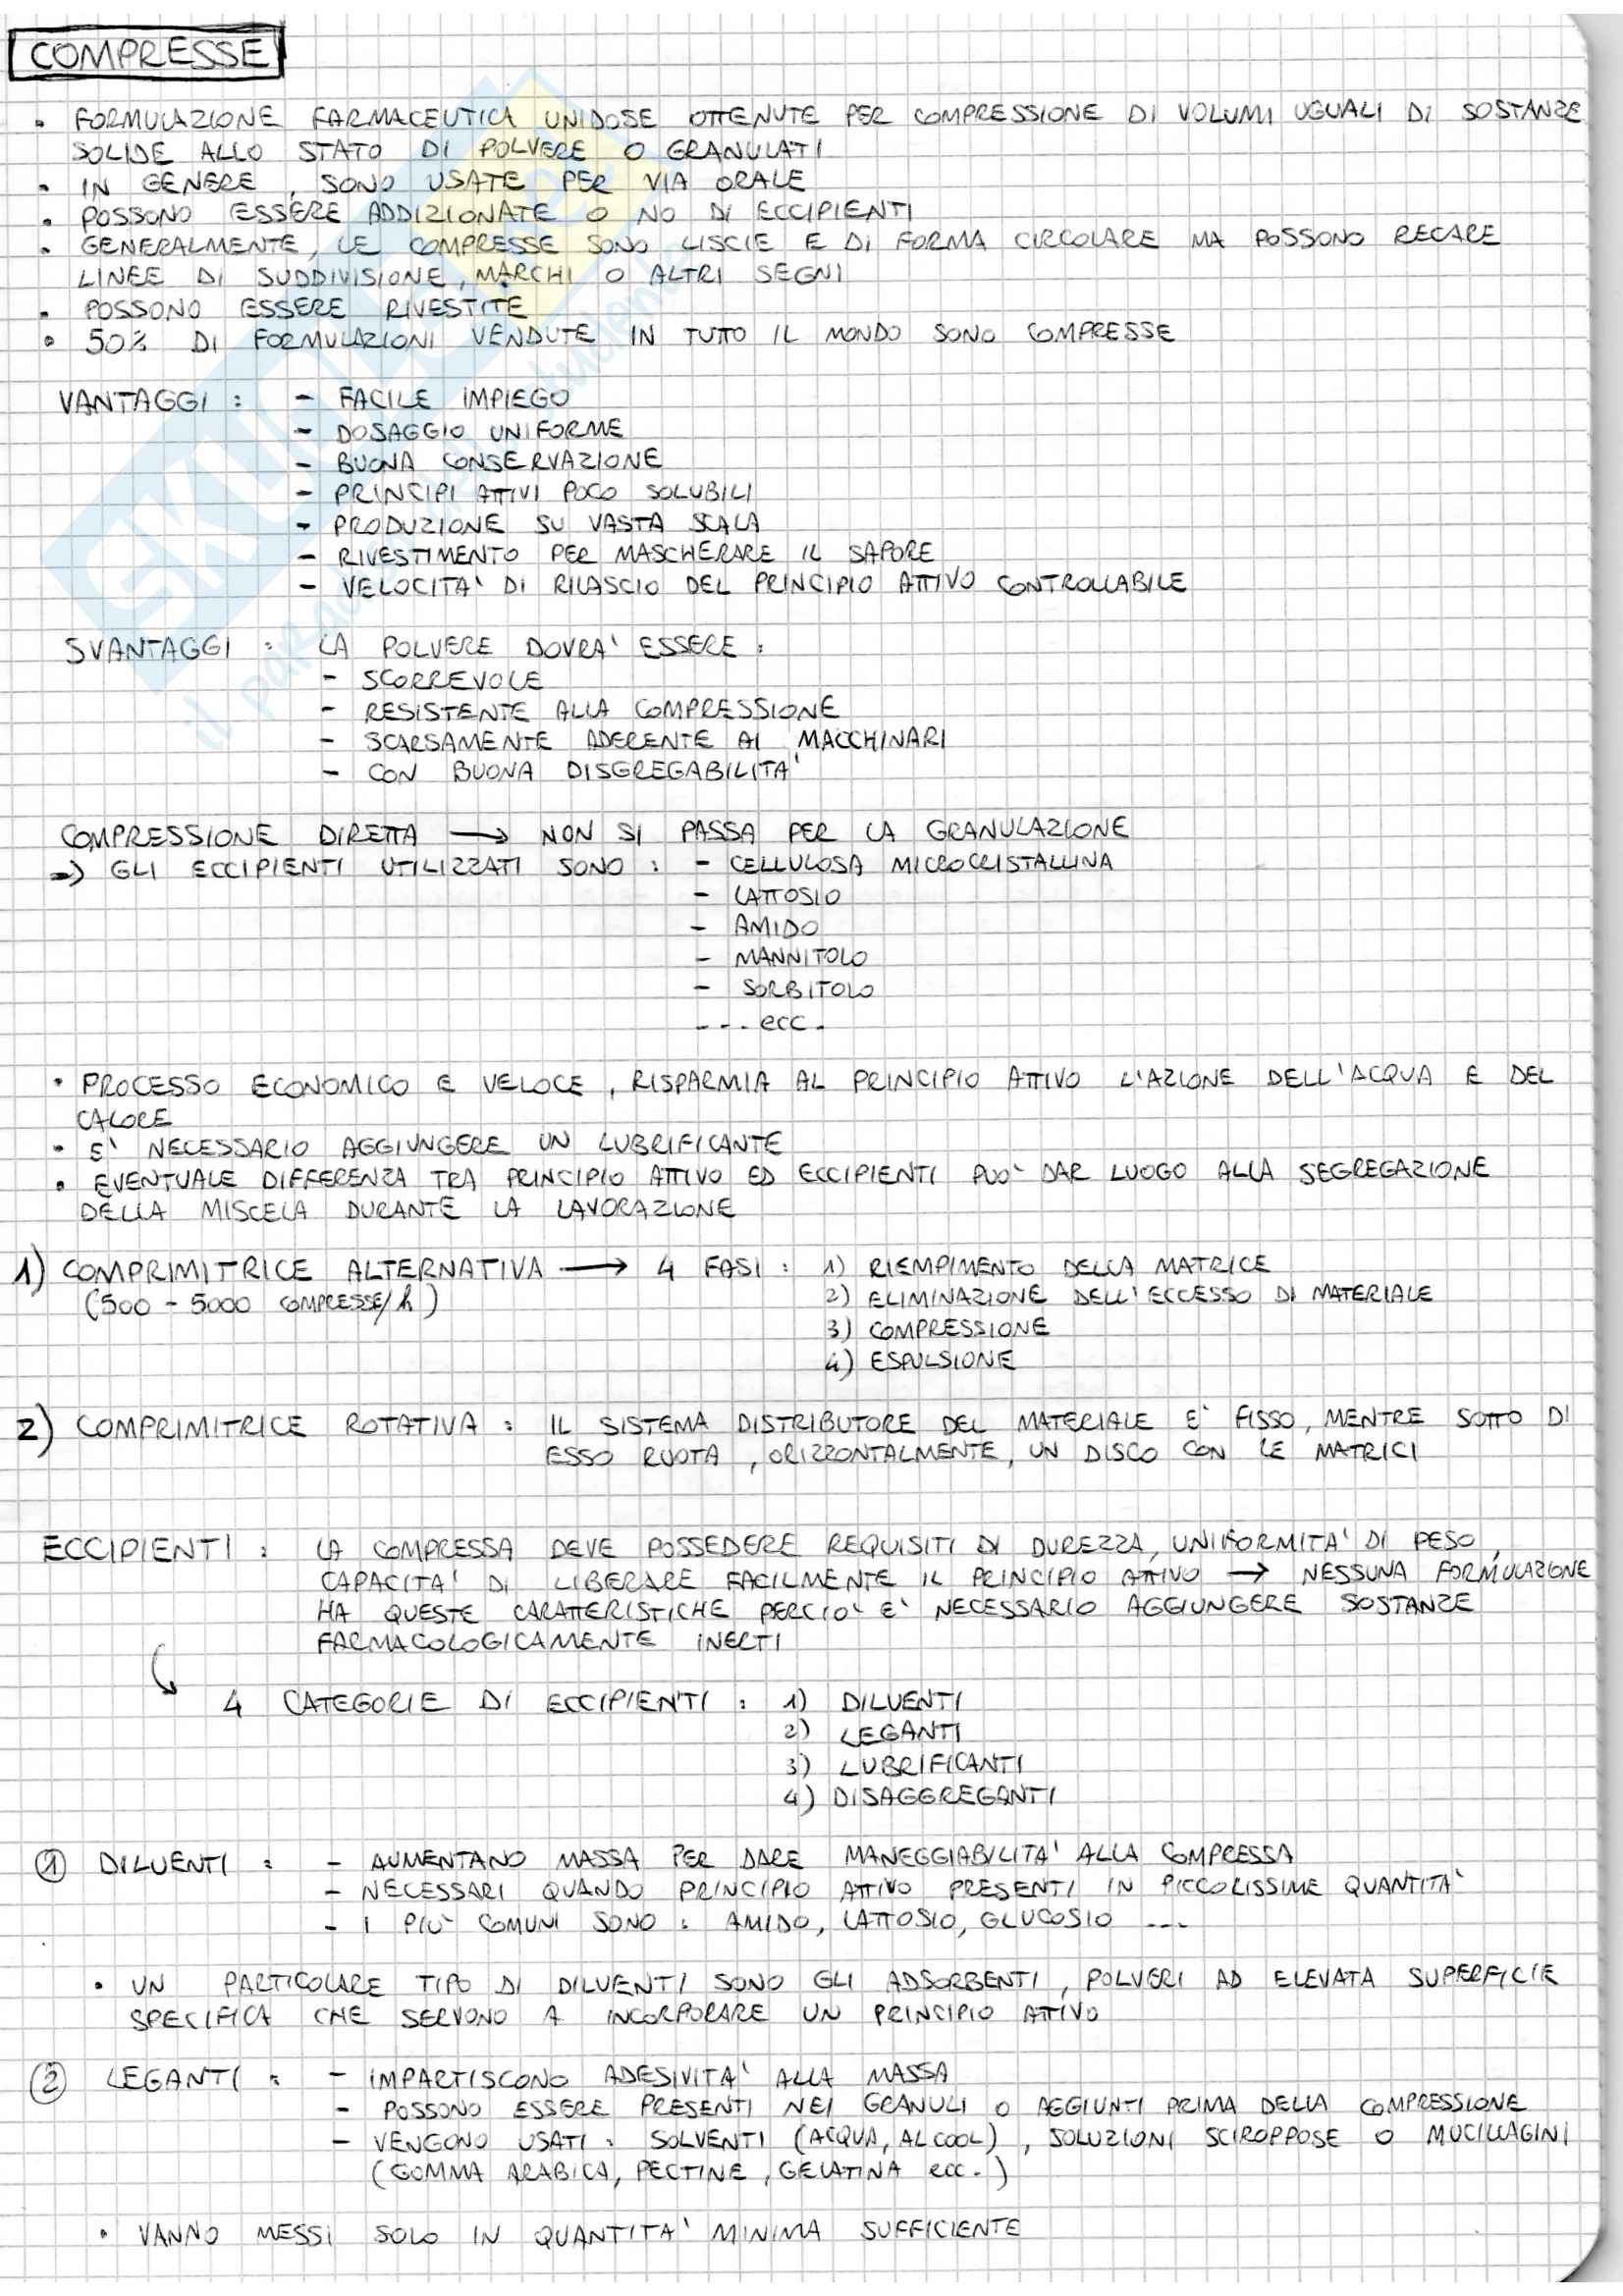 COMPRESSE
• FORMULAZIONE FARMACEUTICA UNIDOSE OTTENUTE PER COMPRESSIONE DI VOLUMI UGUALI DI SOSTANZE
SOLIDE ALLO STATO DI POLVERE O GRANULATI
• IN GENERE, SONO USATE PER VIA ORALE
• POSSONO ESSERE ADDIZIONATE O NO DI ECCIPIENTI
• GENERALMENTE, LE COMPRESSE SONO LISCIE E DI FORMA CIRCOLARE MA POSSONO RECARE
LINEE DI SUDDIVISIONE, MARCHI O ALTRI SEGNI
• POSSONO ESSERE RIVESTITE
• 50% DI FORMULAZIONI VENDUTE IN TUTTO IL MONDO SONO COMPRESSE
VANTAGGI : - FACILE IMPIEGO
- DOSAGGIO UNIFORME
- BUONA CONSERVAZIONE
- PRINCIPI ATTIVI POCO SOLUBILI
- PRODUZIONE SU VASTA SCALA
- RIVESTIMENTO PER MASCHERARE IL SAPORE
- VELOCITA' DI RILASCIO DEL PRINCIPIO ATTIVO CONTROLLABILE
SVANTAGGI : LA POLVERE DOVRA' ESSERE :
- SCORREVOLE
- RESISTENTE ALLA COMPRESSIONE
- SCARSAMENTE ADERENTE AI MACCHINARI
- CON BUONA DISGREGABILITA'
COMPRESSIONE DIRETTA → NON SI PASSA PER LA GRANULAZIONE
⇒ GLI ECCIPIENTI UTILIZZATI SONO : - CELLULOSA MICROCRISTALLINA
- LATTOSIO
- AMIDO
- MANNITOLO
- SORBITOLO
---- ecc.
• PROCESSO ECONOMICO E VELOCE, RISPARMIA AL PRINCIPIO ATTIVO L'AZIONE DELL'ACQUA E DEL
CALORE
• E' NECESSARIO AGGIUNGERE UN LUBRIFICANTE
• EVENTUALE DIFFERENZA TRA PRINCIPIO ATTIVO ED ECCIPIENTI PUO' DAR LUOGO ALLA SEGREGAZIONE
DELLA MISCELA DURANTE LA LAVORAZIONE
1) COMPRIMITRICE ALTERNATIVA → 4 FASI : 1) RIEMPIMENTO DELLA MATRICE
(500 - 5000 COMPRESSE/h) 2) ELIMINAZIONE DELL'ECCESSO DI MATERIALE
3) COMPRESSIONE
4) ESPULSIONE
2) COMPRIMITRICE ROTATIVA : IL SISTEMA DISTRIBUTORE DEL MATERIALE E' FISSO, MENTRE SOTTO DI
ESSO RUOTA, ORIZZONTALMENTE, UN DISCO CON LE MATRICI
ECCIPIENTI : LA COMPRESSA DEVE POSSEDERE REQUISITI DI DUREZZA, UNIFORMITA' DI PESO,
CAPACITA' DI LIBERARE FACILMENTE IL PRINCIPIO ATTIVO → NESSUNA FORMULAZIONE
HA QUESTE CARATTERISTICHE PERCIO' E' NECESSARIO AGGIUNGERE SOSTANZE
FARMACOLOGICAMENTE INERTI
4 CATEGORIE DI ECCIPIENTI : 1) DILUENTI
2) LEGANTI
3) LUBRIFICANTI
4) DISAGGREGANTI
① DILUENTI : - AUMENTANO MASSA PER DARE MANEGGIABILITA' ALLA COMPRESSA
- NECESSARI QUANDO PRINCIPIO ATTIVO PRESENTI IN PICCOLISSIME QUANTITA'
- I PIU' COMUNI SONO : AMIDO, LATTOSIO, GLUCOSIO ---
• UN PARTICOLARE TIPO DI DILUENTI SONO GLI ADSORBENTI, POLVERI AD ELEVATA SUPERFICIE
SPECIFICA CHE SERVONO A INCORPORARE UN PRINCIPIO ATTIVO
② LEGANTI : - IMPARTISCONO ADESIVITA' ALLA MASSA
- POSSONO ESSERE PRESENTI NEI GRANULI O AGGIUNTI PRIMA DELLA COMPRESSIONE
- VENGONO USATI : SOLVENTI (ACQUA, ALCOOL), SOLUZIONI SCIROPPOSE O MUCILLAGINI
(GOMMA ARABICA, PECTINE, GELATINA ecc.)
• VANNO MESSI SOLO IN QUANTITA' MINIMA SUFFICIENTE